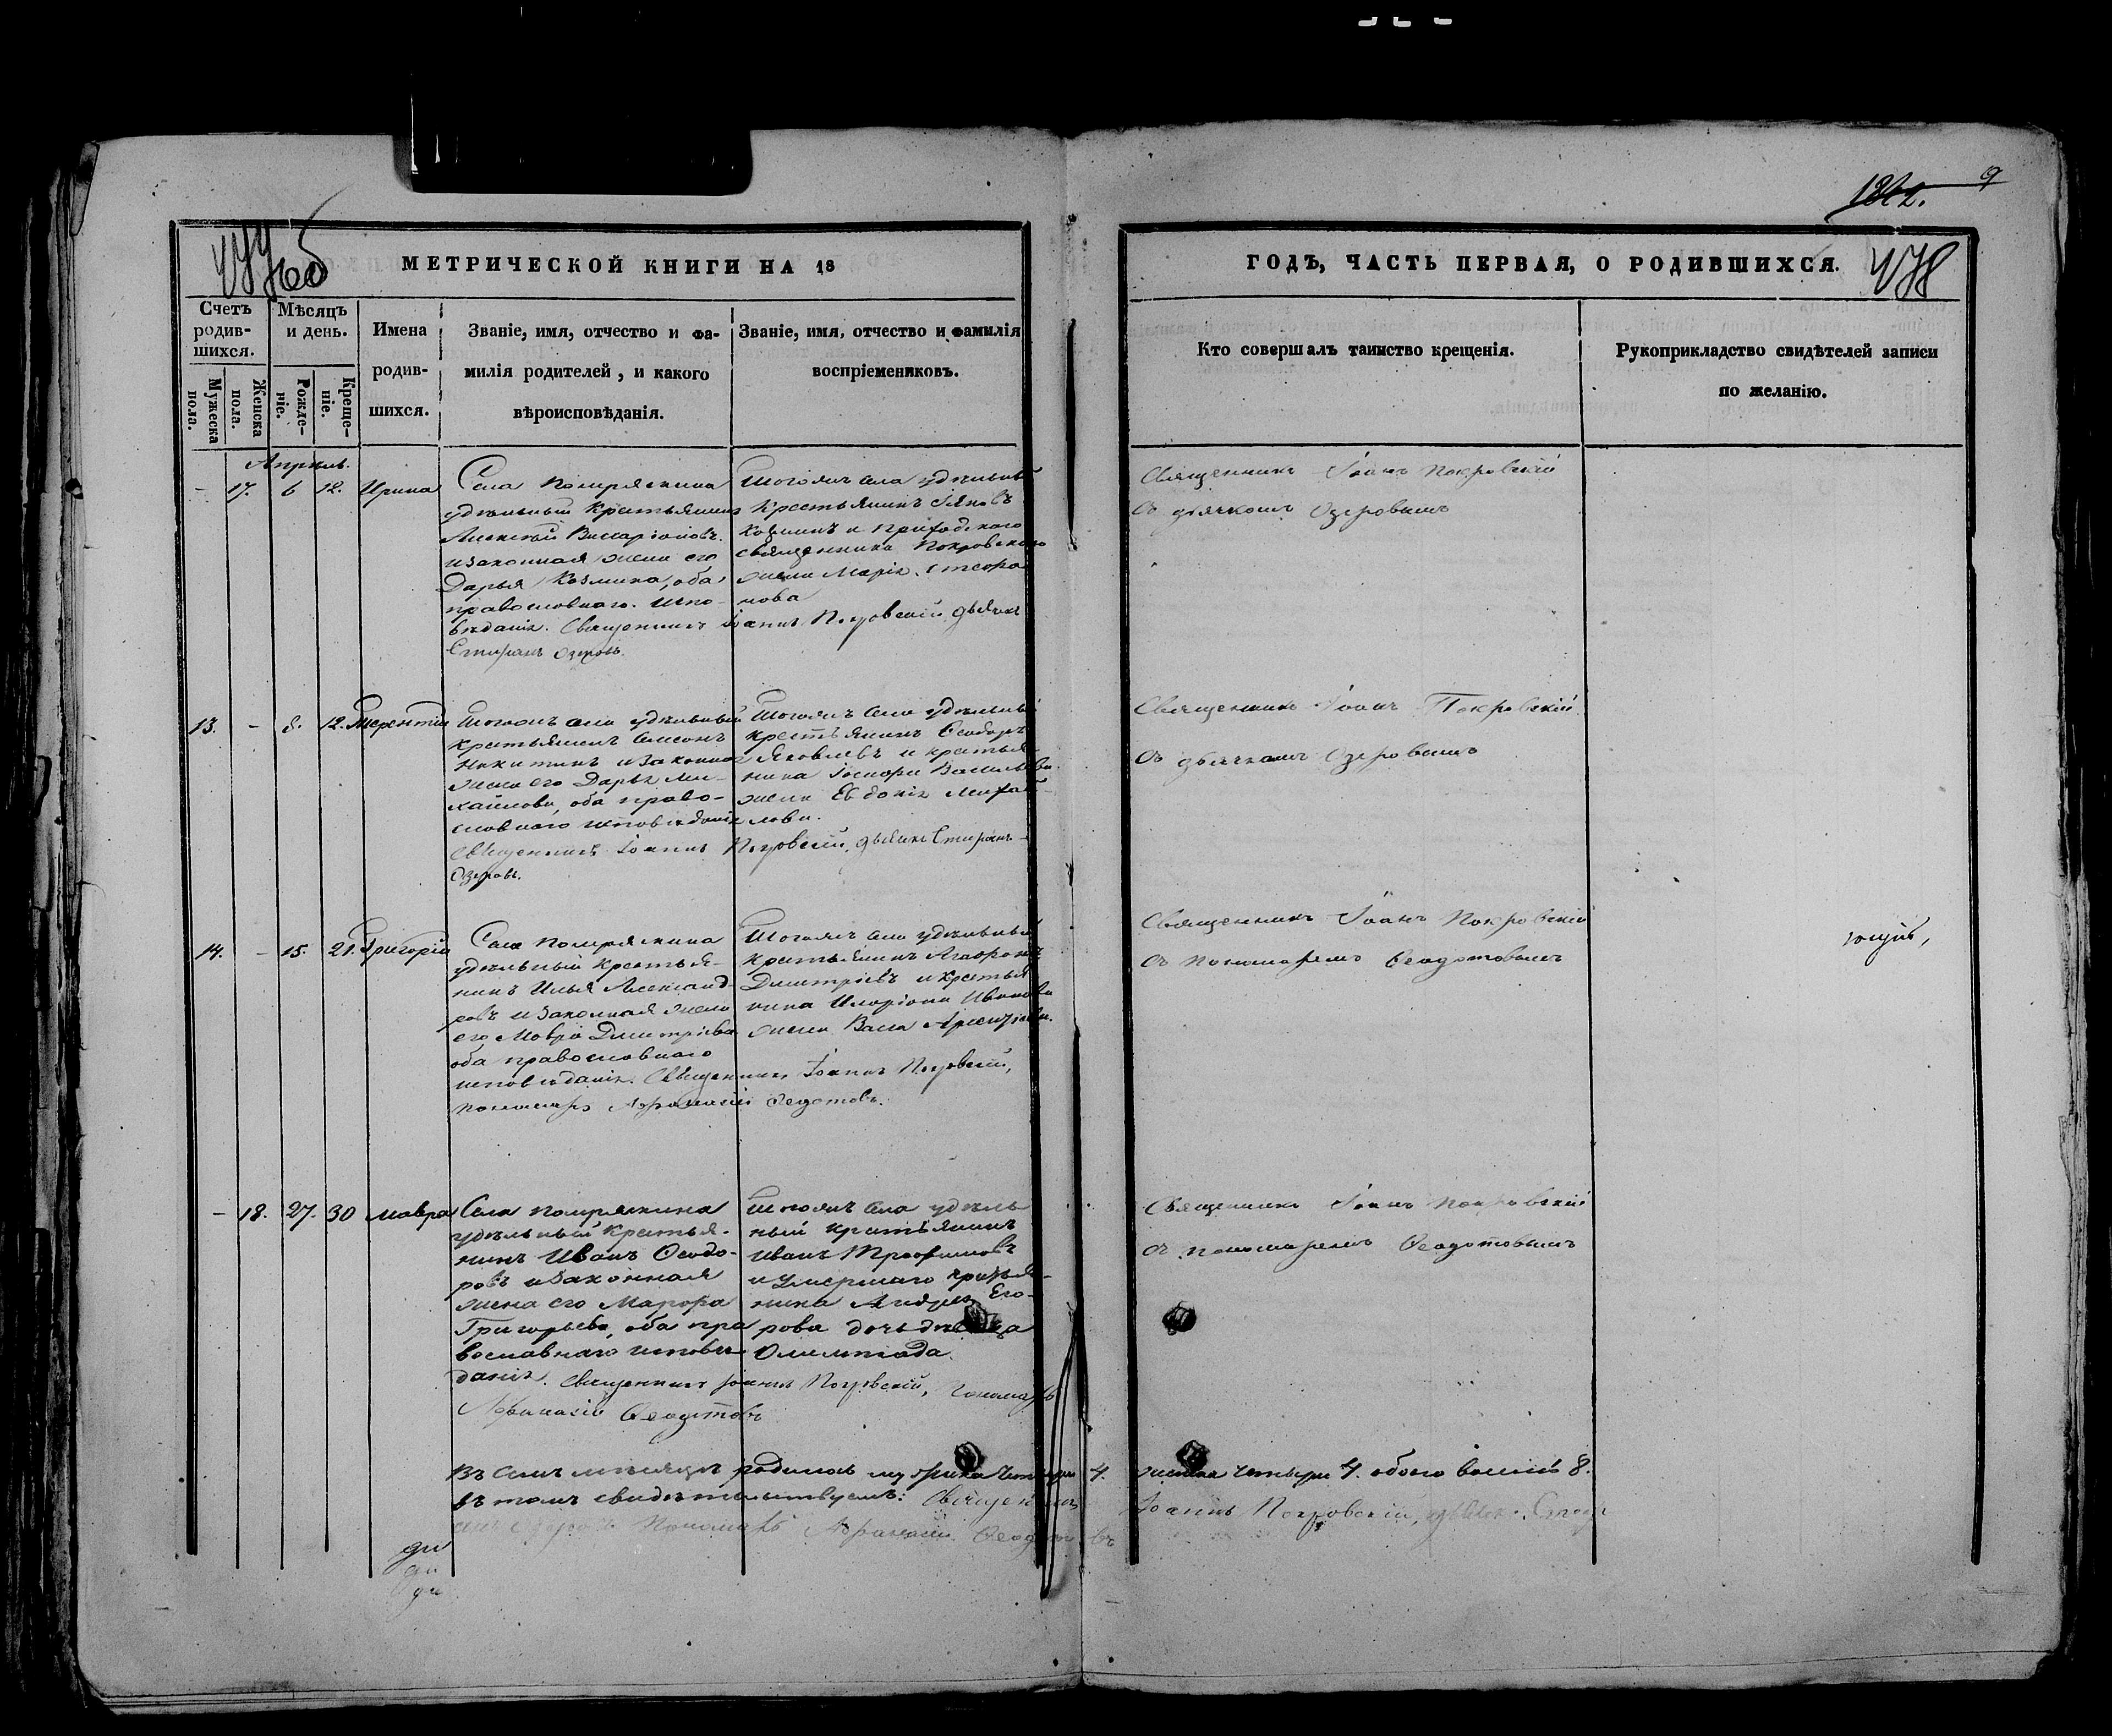 9
МЕТРИЧЕСКОЙ КНИГИ НА 18
ГОДЪ, ЧАСТЬ ПЕРВАЯ, О РОДИВШИХСЯ.
478
Счетъ родив-шихся.
Мужеска пола.
Женска пола.
Мѣсяцъ и день.
Рожде-ніе.
Креще-ніе.
Имена
родив-
шихся.
Званіе, имя, отчество и фа-
милія родителей, и какого
вѣроисповѣданія.
Званіе, имя, отчество и фамилія
воспріемниковъ.
Кто совершалъ таинство крещенія.
Рукоприкладство свидѣтелей записи
по желанію.
Апрѣль.
- 17. 6 12. Ирина
Села
удѣльный крестьянинъ
Алексѣй
и законная жена его
Дарья Козмина, оба
православнаго испо-
вѣданія. Священникъ Іоаннъ Покровскій дьячекъ
Озеровъ.
Тогожъ села удѣльный
крестьянинъ Яковъ
Козминъ и приходскаго
священника Покровскаго
жена Марія Стефа
нова
Священникъ Іоанъ Покровскій
съ дьячкомъ Озеровымъ
13. - 8. 12. Терентій
Тогожъ села удѣльный
крестьянинъ
Никитинъ и законная
жена его Дарья Ми-
хайлова, оба право-
славнаго исповѣданія
Священникъ Іоаннъ Покровскій, дьячекъ
Озеровъ.
Тогожъ села удѣльный
крестьянинъ Ѳеодоръ
Яковлевъ и крестья-
нина Васильева
жена Евдокія Михай-
лова.
Священникъ Іоанъ Покровскій
съ дьячкомъ Озеровымъ
14. - 15. 21. Григорій
Села
удѣльный крестья-
нинъ Илья Александ-
ровъ и законная жена
его Мавра Дмитріева
оба православнаго
исповѣданія. Священникъ Іоаннъ Покровскій,
пономарь Афанасій Ѳедотовъ.
Тогожъ села удѣльный
крестьянинъ
Дмитріевъ и крестья
нина Иларіона Иванова
жена
Священникъ Іоанъ Покровскій
съ пономаремъ Ѳеодотовымъ
- 18. 27. 30 Мавра
Села
удѣльный крестья-
нинъ Иванъ Ѳеодо-
ровъ и законная
жена его Марфа
Григорьева, оба пра
вославнаго исповѣ-
данія. Священникъ Іоаннъ Покровскій, пономарь
Афанасій Ѳеодотовъ
Тогожъ села удѣль
ный крестьянинъ
Иванъ Трофимовъ
и умершаго крестья-
нина Андрея Его-
рова дочь дѣвица
Олимпіада.
Священникъ Іоанъ Покровскій
съ пономаремъ Ѳеодотовымъ
Въ семъ мѣсяцѣ родилось мужеска четыре 4. женска четыре 4. обоего 8.
въ томъ свидѣтельствуемъ: Священникъ Іоаннъ Покровскій, дьячекъ
Пономарь Афанасій Ѳеодотовъ